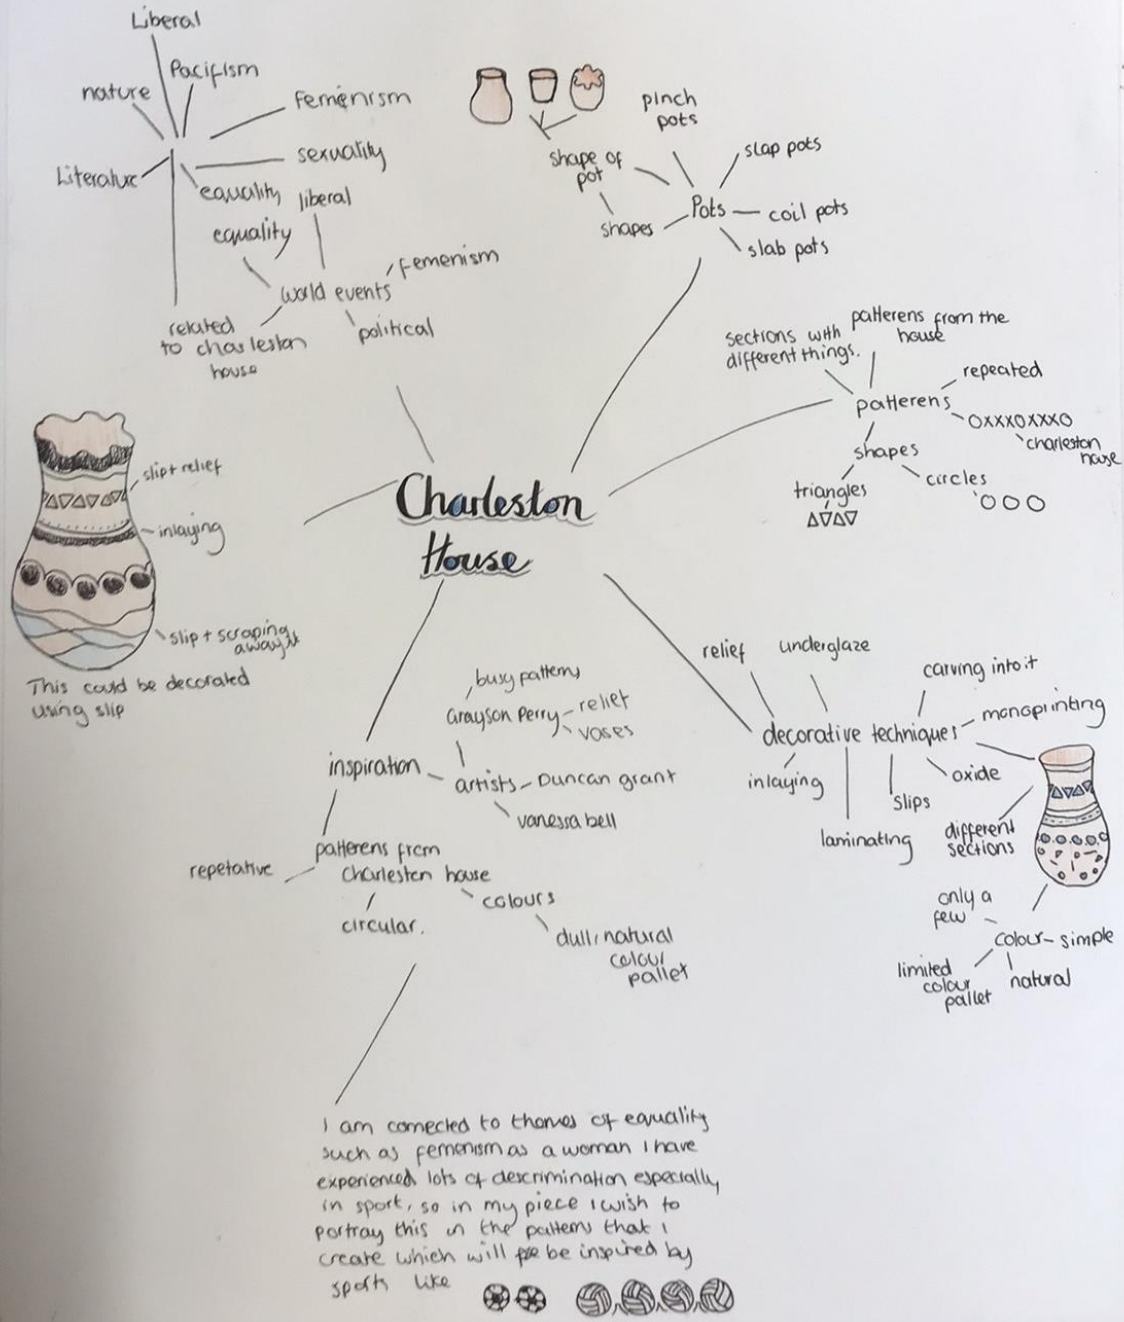 Liberal
Pacifism
nature
Femenism
sexuality
Literature
equality
liberal
equality
femenism
world events
political
related
to charleston
house
pinch
pots
slap pots
shape of
pot
Pots
coil pots
shapes
slab pots
patterens from the
house
sections with
different things.
repeated
patterens
OXXXOXXXO
charleston
house
shapes
circles
triangles
slip + relief
inlaying
slip + scraping
away
This could be decorated
using slip
Charleston
House
relief
underglaze
carving into it
monoprinting
decorative techniques
inlaying
oxide
slips
laminating
different
sections
only a
few
colour - simple
limited
colour
pallet
natural
busy patterns
Grayson Perry - relief
vases
inspiration
artists - Duncan grant
vanessa bell
patterens from
charleston house
repetative
colours
circular.
dull, natural
colour
pallet
I am connected to themes of equality
such as femenism as a woman I have
experienced lots of descrimination especially
in sport, so in my piece I wish to
portray this in the patterns that I
create which will be inspired by
sports like